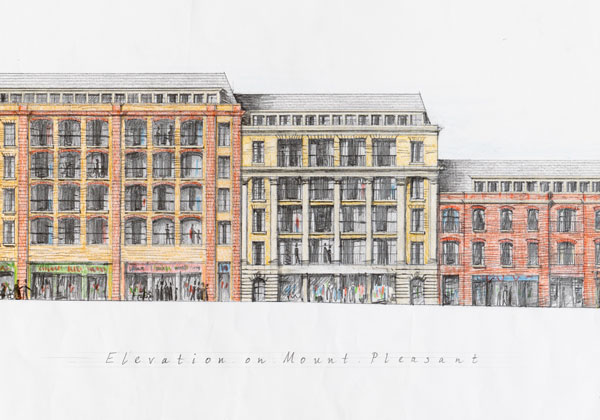 Elevation on Mount Pleasant